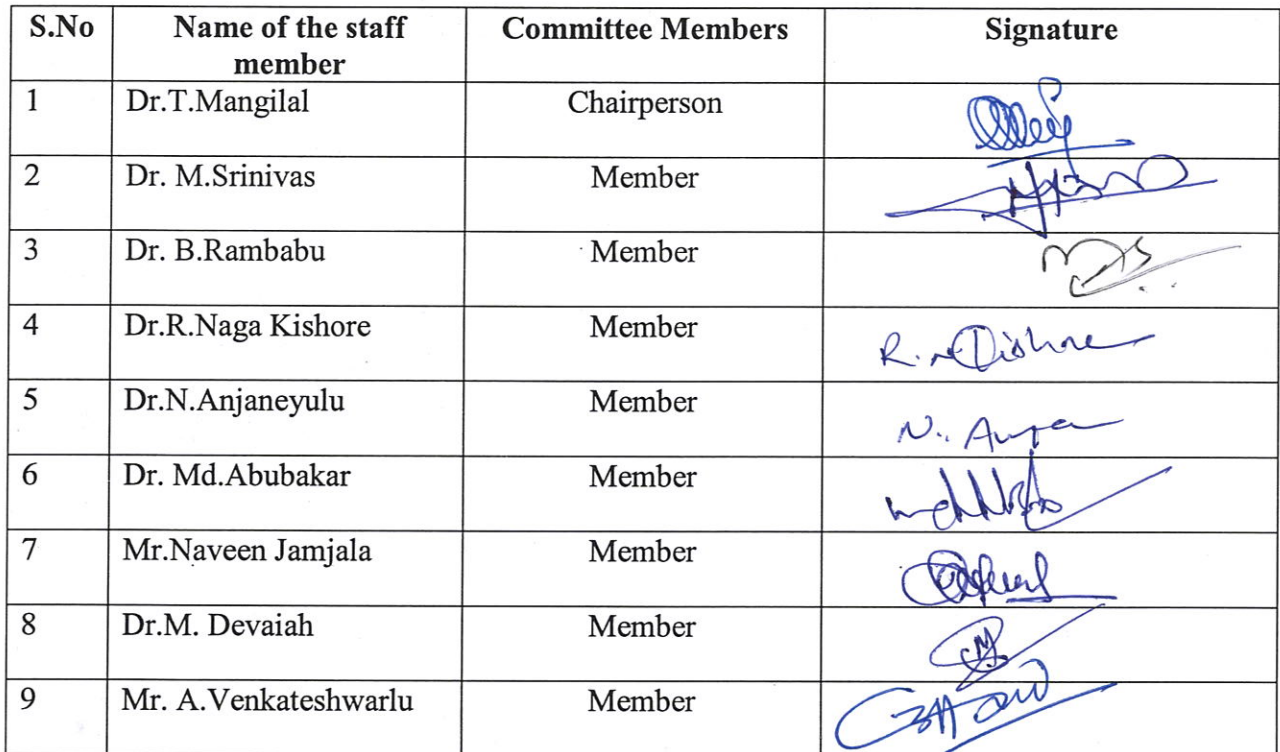 S.No Name of the staff member Committee Members Signature
1 Dr.T.Mangilal Chairperson
2 Dr. M.Srinivas Member
3 Dr. B.Rambabu Member
4 Dr.R.Naga Kishore Member R.N.Kishore
5 Dr.N.Anjaneyulu Member
6 Dr. Md.Abubakar Member
7 Mr.Naveen Jamjala Member
8 Dr.M. Devaiah Member
9 Mr. A.Venkateshwarlu Member